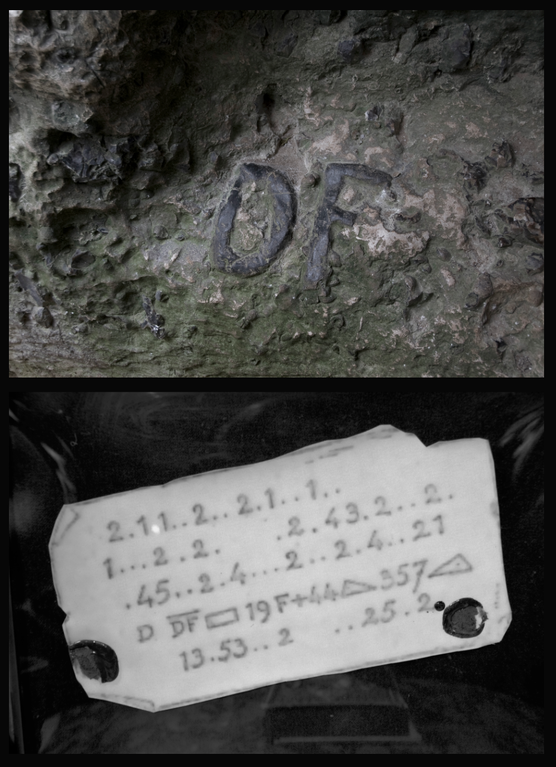 DF
2.11..2...2.1..1..
1...2.2.   .2.43.2..2.
.45..2.4...2..2.4..21
D DF▭19F+44◺357△
13.53..2   ..25.2.